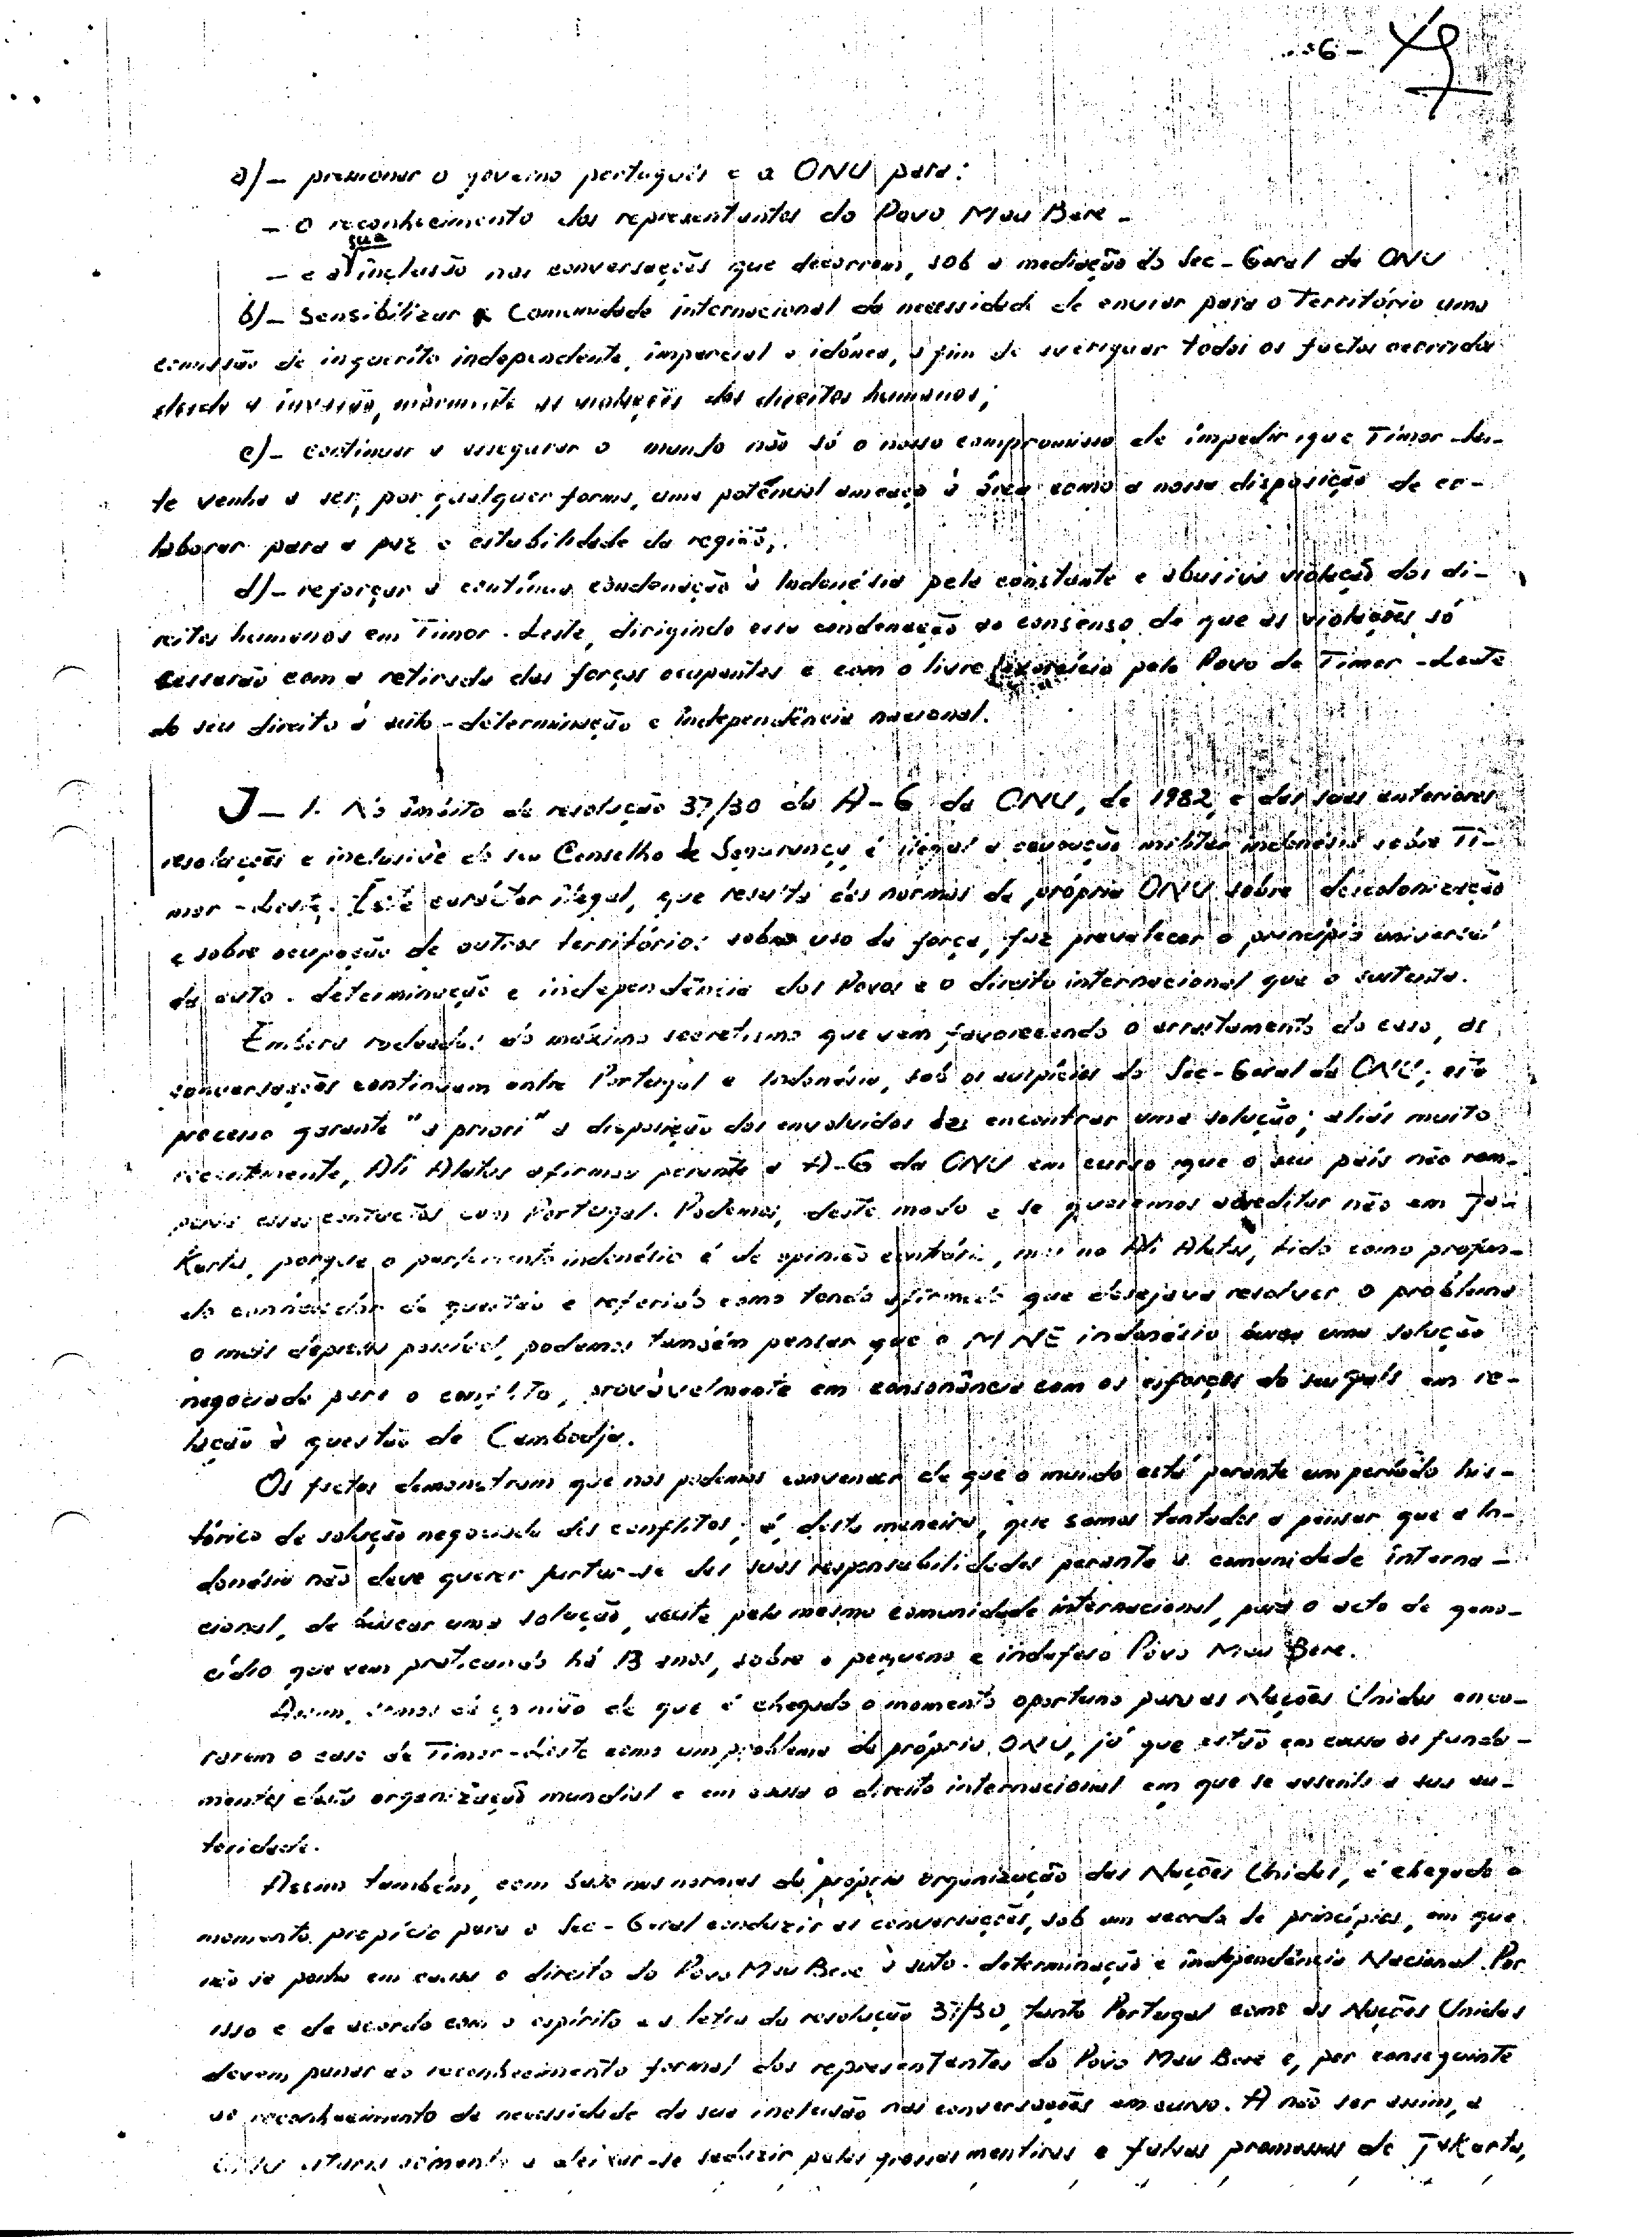 - 6 -
a) - pressionar o governo português e a ONU para:
- o reconhecimento dos representantes do Povo Mau Bere -
sua
- e a inclusão nas conversações que decorrem, sob a mediação do Sec-Geral da ONU
b) - sensibilizar a Comunidade internacional da necessidade de enviar para o Território uma
comissão de inquérito independente, imparcial e idónea, a fim de averiguar todos os factos ocorridos
desde a invasão, mòrmente as violações dos direitos humanos;
c) - continuar a assegurar o mundo não só o nosso compromisso de impedir que Timor-Les-
te venha a ser, por qualquer forma, uma potêncial ameaça à área como a nossa disposição de co-
laborar para a paz e estabilidade da região;
d) - reforçar a contínua condenação à Indonésia pela constante e abusiva violação dos di-
reitos humanos em Timor-Leste, dirigindo essa condenação ao consenso de que as violações só
cessarão com a retirada das forças ocupantes e com o livre exercício pelo Povo de Timor-Leste
do seu direito à auto-determinação e independência nacional.
J - 1. No âmbito da resolução 37/30 da A-G da ONU, de 1982, e das suas anteriores
resoluções e inclusivè do seu Conselho de Segurança é ilegal a ocupação militar indonésia sobre Ti-
mor-Leste. Este carácter ilegal, que resulta das normas da própria ONU sobre descolonização
e sobre ocupação de outros territórios sobre uso da força, faz prevalecer o princípio universal
da auto-determinação e independência dos Povos e o direito internacional que o sustenta.
Embora rodeados do máximo secretismo que vem favorecendo o arrastamento do caso, as
conversações continuam entre Portugal e Indonésia, sob os auspícios do Sec-Geral da ONU; este
processo garante "a priori" a disposição dos envolvidos de encontrar uma solução; aliás muito
recentemente, Ali Alatas afirmou perante a A-G da ONU em curso que o seu país não rom-
peria esses contactos com Portugal. Podemos, deste modo e se quisermos acreditar não em Ja-
Karta, porque o parlamento indonésio é de opinião contrária, mas no Ali Alatas, tido como profun-
do conhecedor da questão e referido como tendo afirmado que desejava resolver o problema
o mais depressa possível, podemos também pensar que o MNE indonésio busca uma solução
negociada para o conflito, provàvelmente em consonância com os esforços do seu país em re-
lação à questão de Cambodja.
Os factos demonstram que nos podemos convencer de que o mundo está perante um período his-
tórico de solução negociada dos conflitos; é, desta maneira, que somos tentados a pensar que a In-
donésia não deve querer furtar-se das suas responsabilidades perante a comunidade interna-
cional, de buscar uma solução, aceite pela mesma comunidade internacional, para o acto de geno-
cídio que vem praticando há 13 anos, sobre o pequeno e indefeso Povo Mau Bere.
Assim, somos da opinião de que é chegado o momento oportuno para as Nações Unidas enca-
rarem o caso de Timor-Leste como um problema da própria ONU, já que estão em causa os funda-
mentos desta organização mundial e em causa o direito internacional em que se assenta a sua au-
toridade.
Assim também, com base nas normas da própria organização das Nações Unidas, é chegado o
momento propício para o Sec-Geral conduzir as conversações, sob um acordo de princípios, em que
não se ponha em causa o direito do Povo Mau Bere à auto-determinação e independência Nacional. Por
isso e de acordo com o espírito e a letra da resolução 37/30, tanto Portugal como as Nações Unidas
devem punar ao reconhecimento formal dos representantes do Povo Mau Bere e, por conseguinte
ao reconhecimento da necessidade da sua inclusão nas conversações em curso. A não ser assim, a
ONU estaria sòmente a deixar-se seduzir pelas grossas mentiras e falsas promessas de JaKarta,